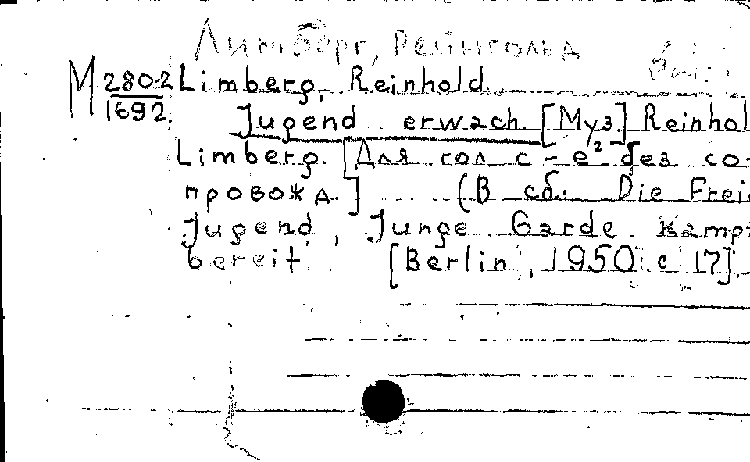 Лимберг, Рейнгольд
М 2802 Limberg, Reinhold
1692 Jugend erwach [Муз.] Reinhol
Limberg. [Для гол с - e² без со-
провожд.] (В сб: Die Frei
Jugend, Junge Garde. Kampf
bereit [Berlin, 1950 с 17]